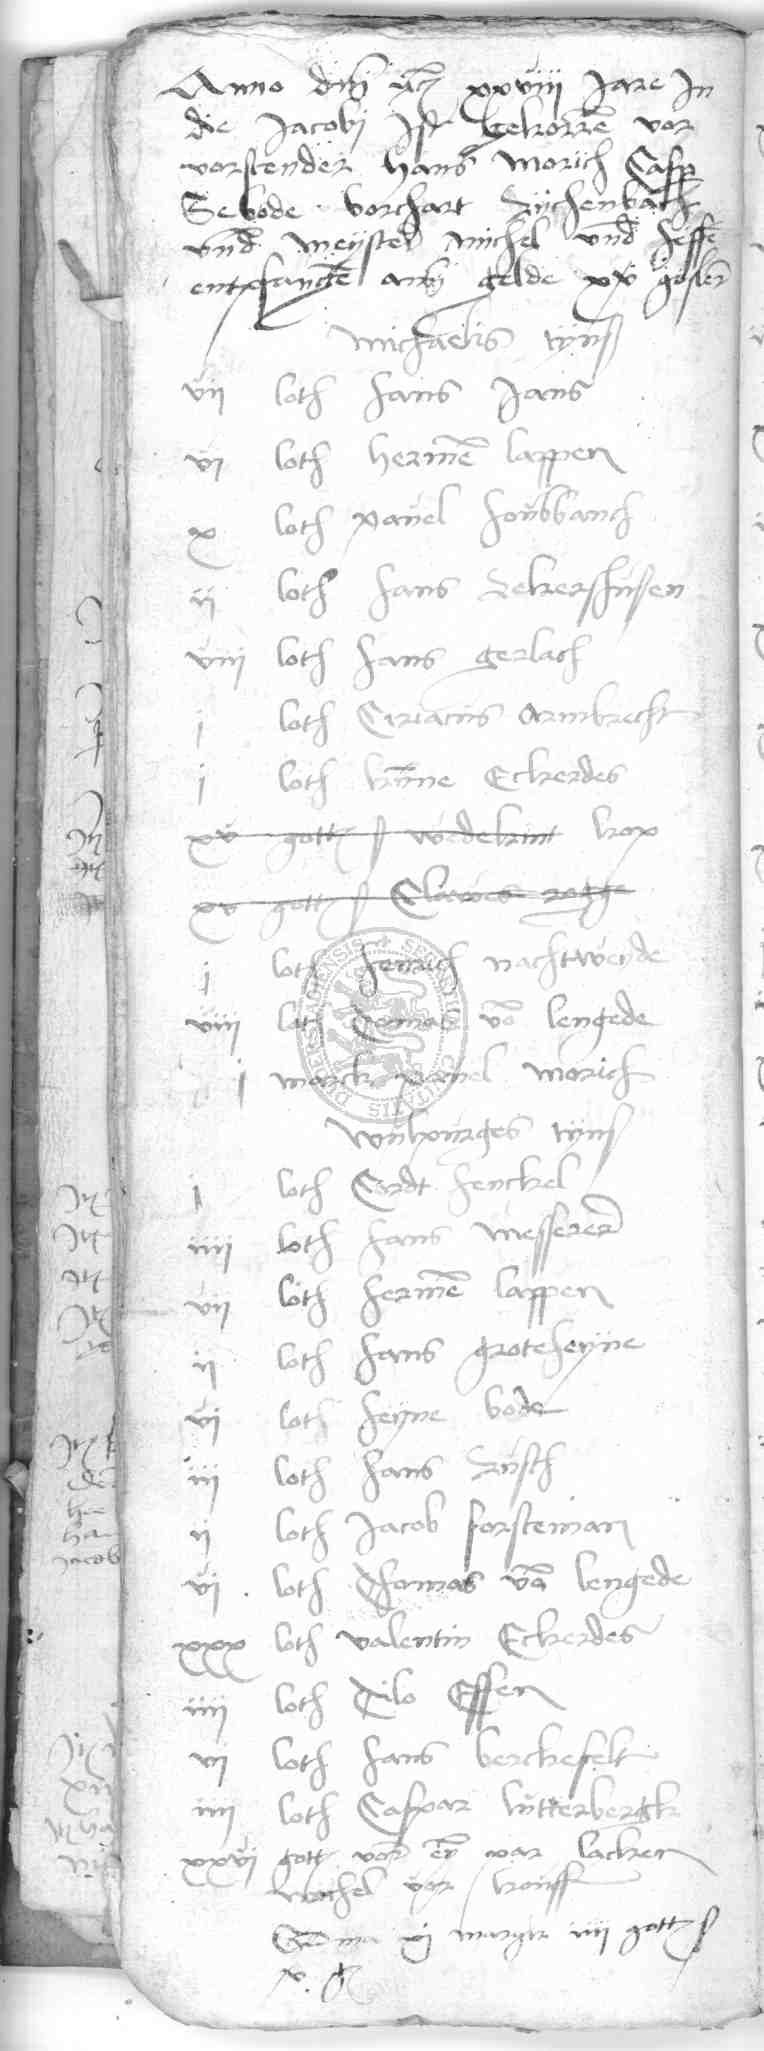 Anno dni xxviii Jare In
die Jacobi Ist gekorrē vor
vorstender hans Morich Casp
Sebode borchart Zychenbach
vnd meyster michel vnd heffē
entpfangē an gelde xv gosler
michaelis tyns
vii loth hans Jans
vi loth hermē lappen
x loth pauel
ii loth hans Zekershusen
viii loth hans gerlach
i loth Ciriacus Armbrecht
i loth kunne Eckerdes
xv gott wedekint kop
xv gott Clawes rotge
j loth henrich nachtweyde
viii loth Tomas vō lengede
j marck pauel morich
wulpurges tyns
i loth Cordt henckel
iiii loth hans messerer
vii loth hermē lappen
ii loth hans groteheyne
vi loth heyne bode
iii loth hans Zusch
ii loth Jacob forsteman
vi loth Thomas vō lengede
xxx loth valentin Eckerdes
iiii loth Tilo Essen
vi loth hans berckefelt
iiii loth Caspar lutterbergk
xxvi gott vor ein par lacken
michel vor kouff
Sūma vj margk iiii gott
v